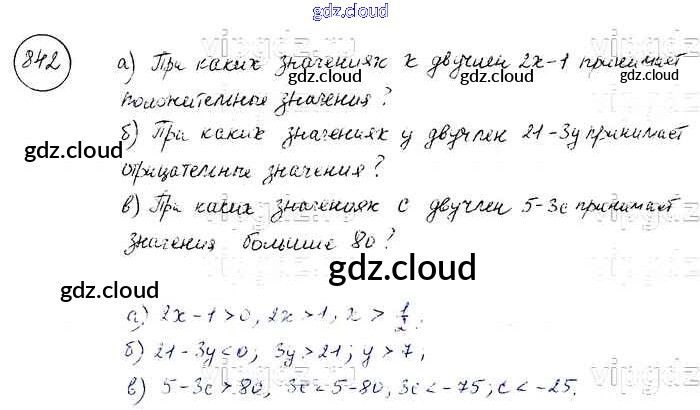 gdz.cloud
gdz.cloud
842
а) При каких значениях x двучлен 2x-1 принимает
gdz.cloud gdz.cloud
положительные значения?
б) При каких значениях y двучлен 21-3y принимает
gdz.cloud
отрицательные значения?
в) При каких значениях c двучлен 5-3c принимает
gdz.cloud gdz.cloud
значения больше 80?
gdz.cloud
gdz.cloud
а) 2x-1>0, 2x>1, x > 1/2;
б) 21-3y<0; 3y>21; y>7;
в) 5-3c>80, 3c<5-80, 3c<-75; c<-25.